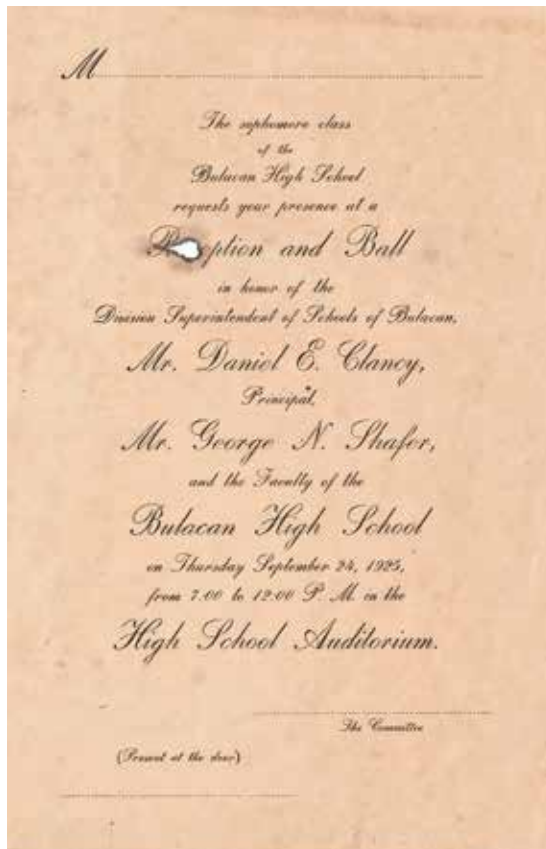 M
The sophomore class
of the
Bulacan High School
requests your presence at a
R ption and Ball
in honor of the
Division Superintendent of Schools of Bulacan,
Mr. Daniel E. Clancy,
Principal,
Mr. George N. Shafer,
and the Faculty of the
Bulacan High School
on Thursday September 24, 1925,
from 7:00 to 12:00 P. M. in the
High School Auditorium.
The Committee
(Present at the door)